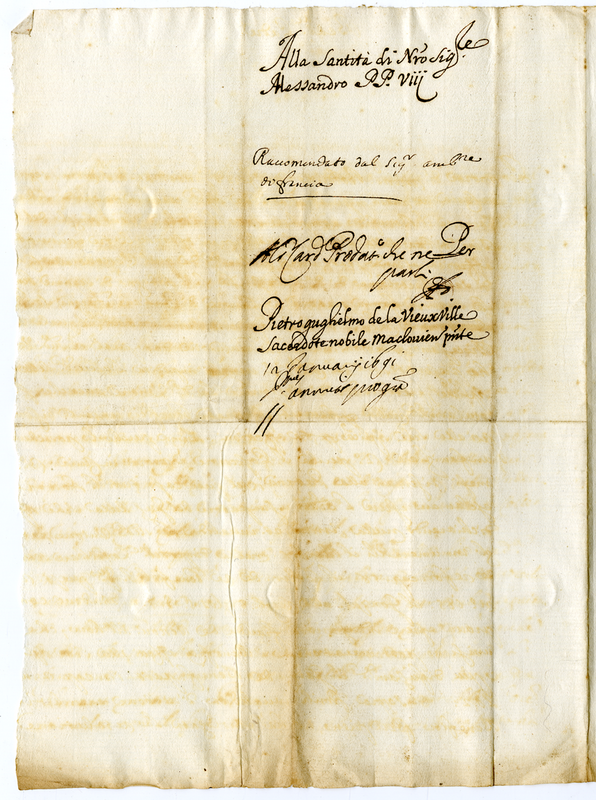 Alla Santità di Nro Sig.re
Alessandro PP. VIII
Raccomendato dal Sigr ambre
di francia
Al Card. Prodat.o che ne Per
parli
Pietro guglielmo de la Vieux Ville
Sacerdote nobile Maclovien
12 Januarij 1691
annuit pro gra